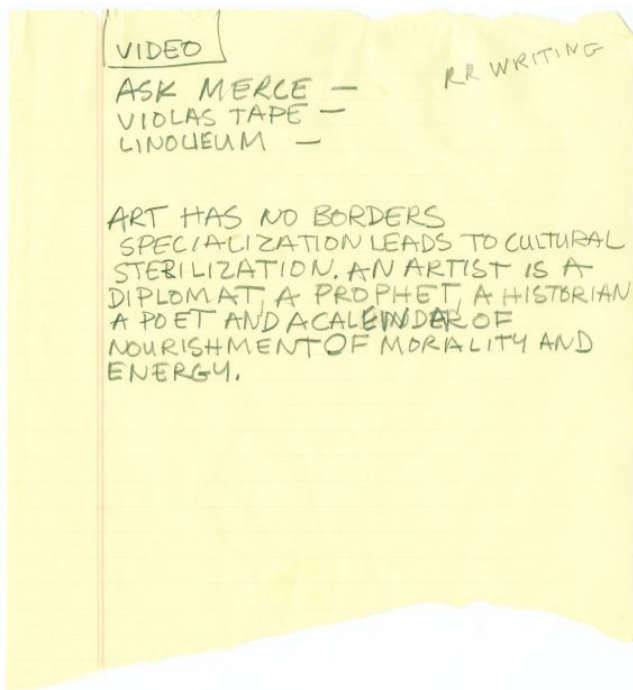 VIDEO
RR WRITING
ASK MERCE —
VIOLAS TAPE —
LINOLIEUM —
ART HAS NO BORDERS
SPECIALIZATION LEADS TO CULTURAL
STERILIZATION. AN ARTIST IS A
DIPLOMAT, A PROPHET, A HISTORIAN
A POET AND A CALEINDAR OF
NOURISHMENT OF MORALITY AND
ENERGY.